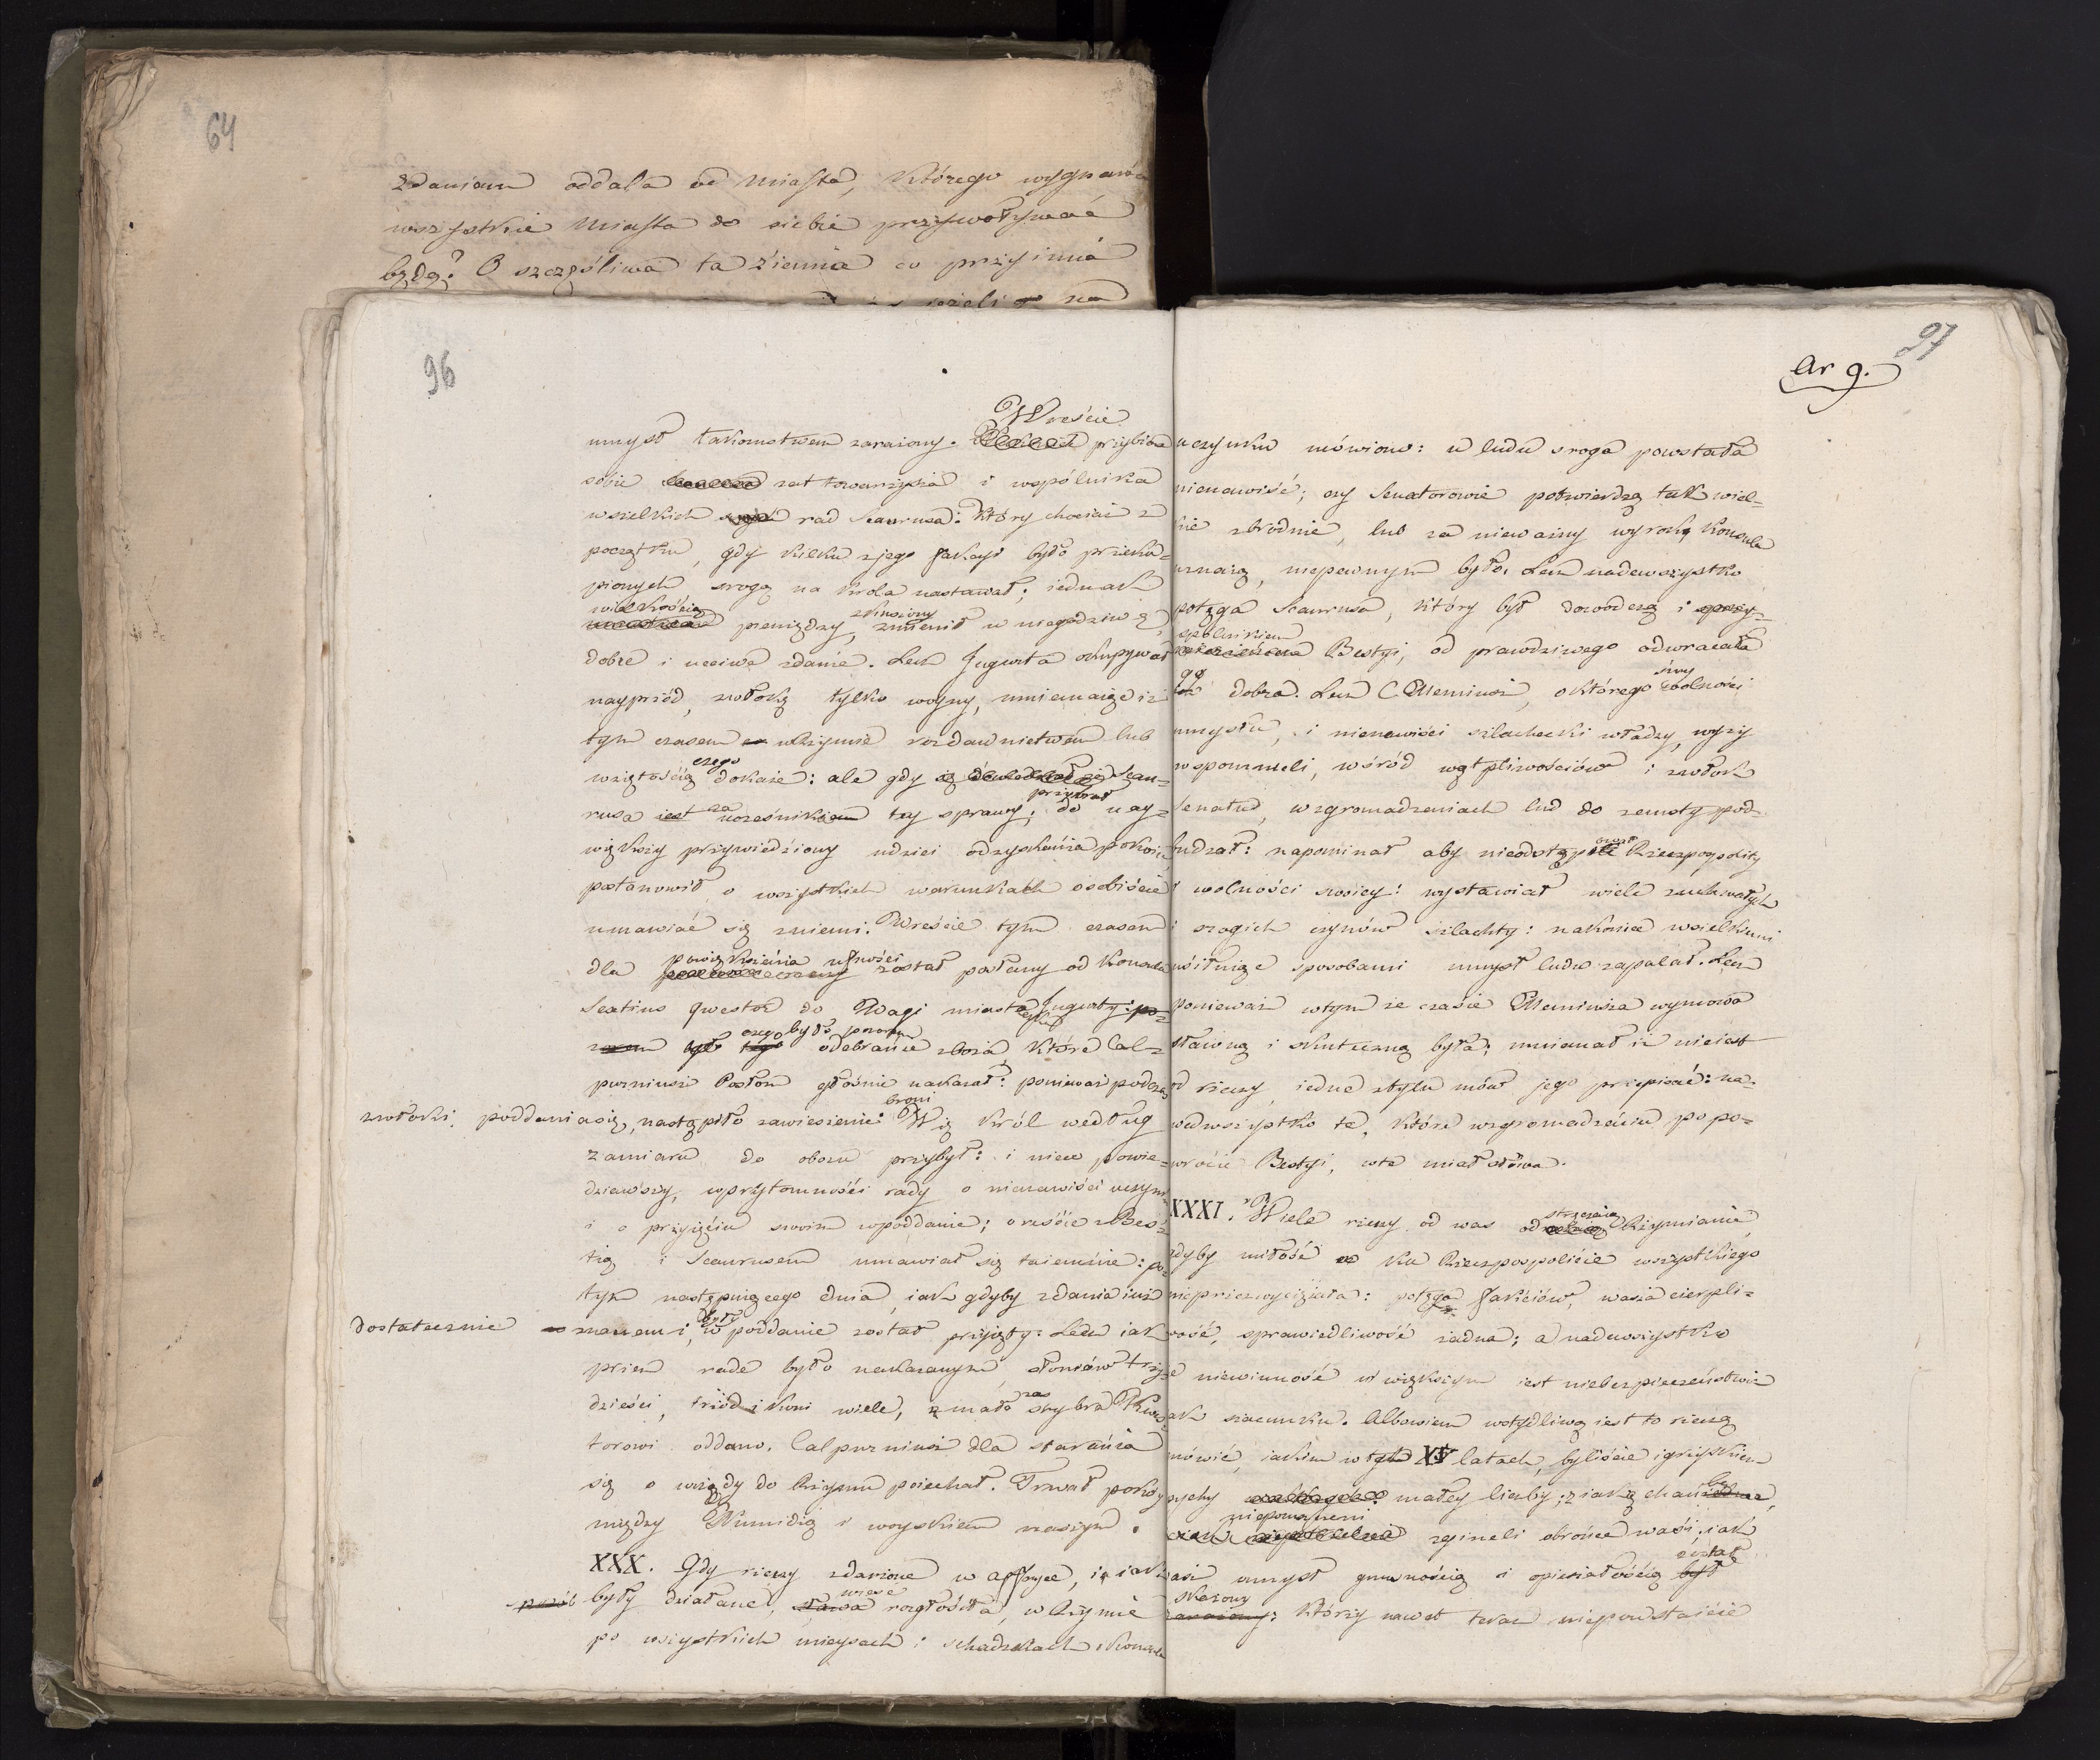 64
zdaniem oddala od Miasta, którego wygnańca
wszystkie Miasta do siebie przywoływać
będą? O szczęśliwa ta ziemia co przyimie
jeżeli go na
96
Wreście
umysł łakomstwem zarażony. przybiera
sobie zat towarzysza i wspólnika
wszelkich swych rad Scaurusa: który chociaż z
początku, gdy kilku z jego fakcyi było przeku=
pionych srogo na krola nastawał; iednak
wielkością zkuszony
pieniędzy, zmienił w niegodziwą,
dobre i ucciwe zdanie. Lecz Jugurta okupywał
nayprzód, zwłokę tylko woyny, mniemaiąc iż
tym czasem w Rzymie rozdawnictwem lub
czego
wziętością dokaże: ale gdy się Scau=
przybrał
rusa iest za ucześnikiem tey sprawy; do nay=
większy przywiedziony udziei odzyskania pokoiu
postanowił, o wszystkich warunkach osobiście
umawiać się zniemi. Wreście tym czasem
powiększenia ufności
dla został posłany od Konsula
Sextius qwestor do Wagi miasta Jugurty: po=
czego było pozorem
zorem był tego odebranie zboża które Cal=
purniusz Posłom głośnie nakazał: ponieważ podczas
broni
zwłoki, poddania się, nastąpiło zawieszenie. Wię król według
zamiaru do obozu przybył: i niece powie=
dziawszy, w przytomności rady o nienawiści uczynku
i o przyięciu swoim w poddanie; o reście z Bes=
tią i Scaurusem umawiał się taiemnie: po=
tym następuiącego dnia, iak gdyby zdania iuż
były
dostatecznie znanemi, w poddanie został przyięty: Lecz iak
przed radę było nakazanym, słoniów trzy=
dzieści, trzód i koni wiele, z małą zaś srybra Kwes=
torowi oddano. Calpurniusz dla starania
się o urzędy do Rzymu poiechał. Trwał pokóy
między Numidią i woyskiem naszym.
XXX. Gdy rzeczy zdarzone w Affryce, i iak
wieść
sposób były działane, sława rozgłosiła, w Rzymie
po wszystkich mieyscach i schadzkach o Konsula
97
Ar 9.
uczynku mówiono: u ludu sroga powstała
nienawiść; czy Senatorowie potwierdzą tak wiel=
kie zbrodnie, lub za nieważny wyrok Konsula
uznaią, niepewnym było. Lecz nadewszystko
potęga Scaurusa, który był dowódcą i sprzy=
spólnikiem
Bestyi, od prawdziwego odwracała
go śnej
dobra. Lecz C. Memiusz, o którego wolności
umysłu, i nienawiści szlachecki władzy, wyży
wspomnieli, wśród wątpliwościów i zwłok
Senatu, w zgromadzeniach lud do zemsty pod=
budzał: napominał aby nieodstępował Rzeczypospolity
i wolności swoiey: wystawiał wiele zuchwałych
i srogich czynów szlachty: nakoniec wszelkiemi
usiłuiąc sposobami umysł ludu zapalał. Lecz
ponieważ w tym że czasie Memiusza wymowa
sławną i skuteczną była; mniemał iż nieiest
od rzeczy, iedne z tylu mów jego przepisać: na=
dewszystko te, które w zgromadzeniu po po=
wrocie Bestyi, w te miał słowa.
strzeczaią
XXXI. "Wiele rzeczy od was od Rzymianie,
gdyby miłość ku Rzeczpospolicie wszystkiego
nieprzezwyciężała: potęga fakciów, wasza cierpli=
wość, sprawiedliwość żadna; a nadewszystko
że niewinność w większym iest niebezpieczeństwie
iak szacunku. Albowiem wstydliwą iest to rzeczą
mówić, iakim w tych XV latach, byliście igrzyskiem
pychy małey liczby; z iaką chańbą,
niepomszczeni
zgineli obrońce wasi, iak
został
wasz umysł gnuśnością i opieszałością był
skażony
zarażony: którzy nawet teraz niepowstaiecie